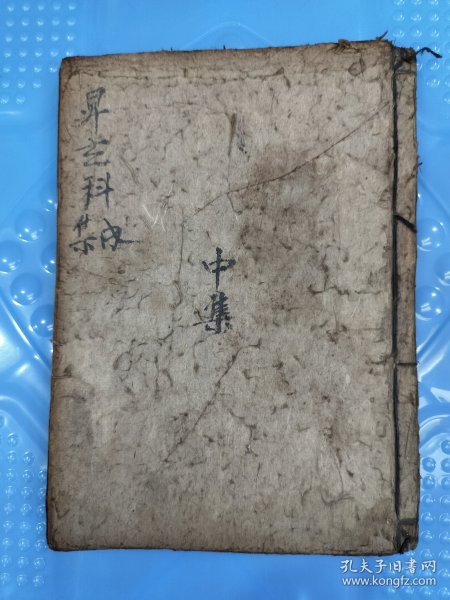 昇玄科
集成
中集
孔夫子旧书网
www.kongfz.com